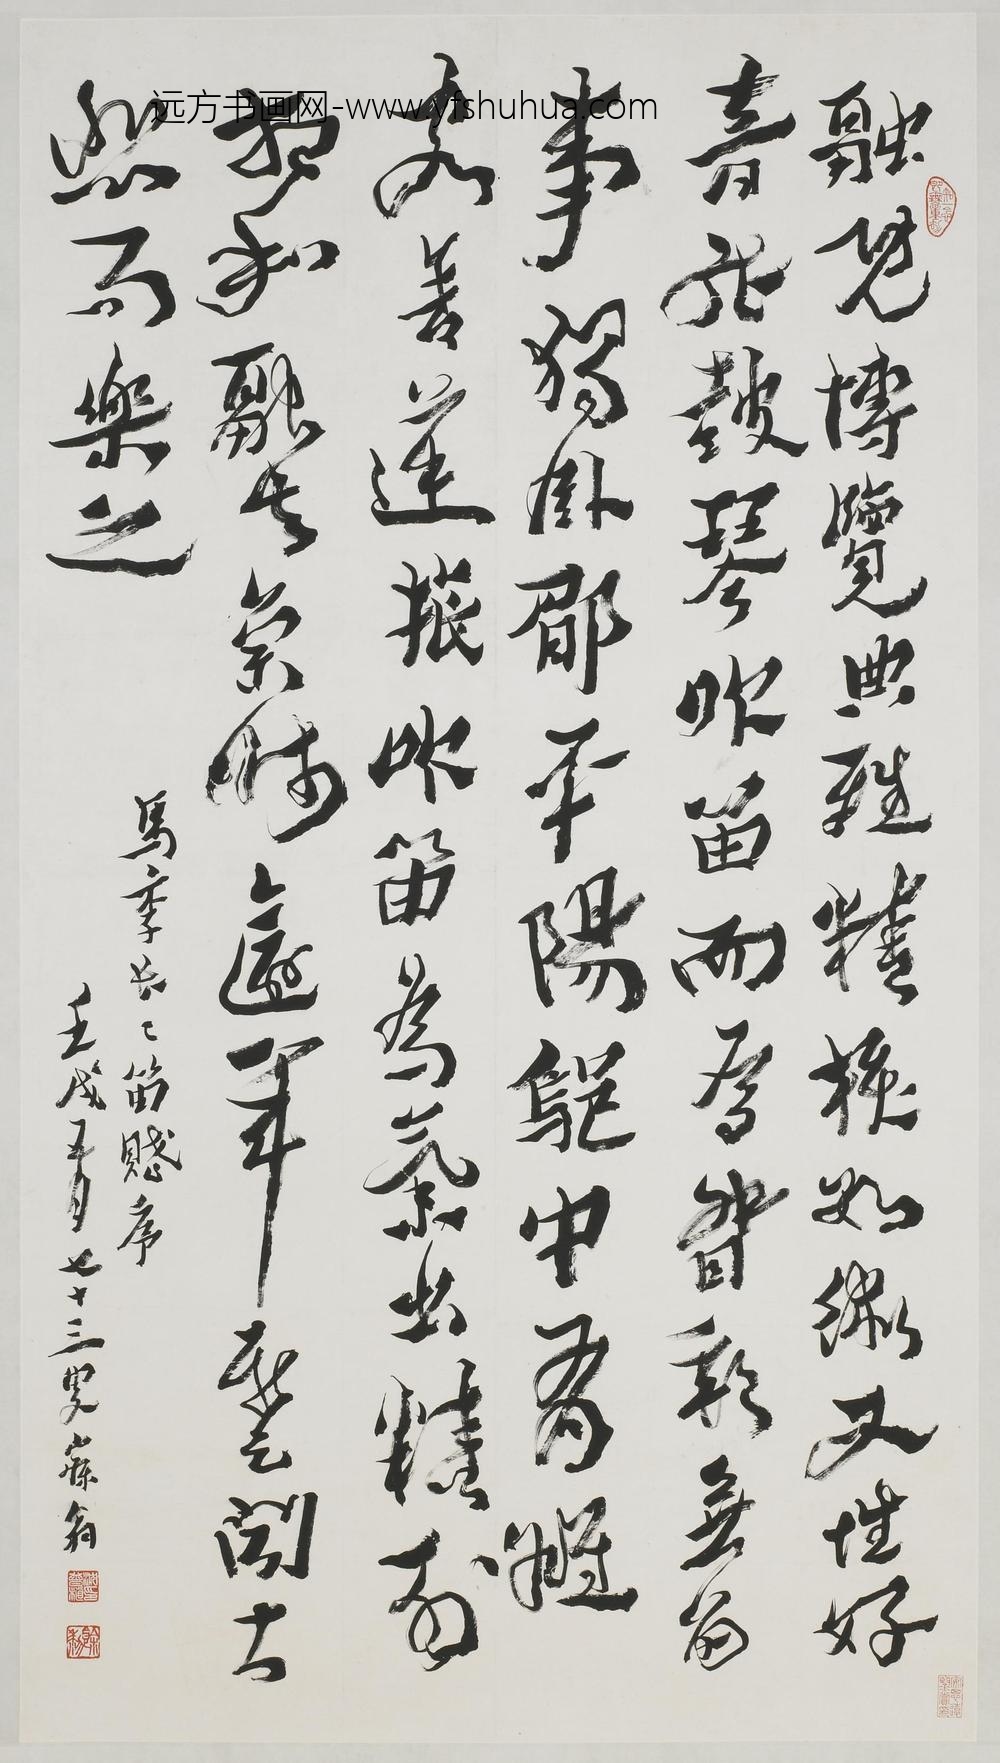 远方书画网-www.yfshuhua.com
融既博覽典雅精核數術又性好
音能鼓琴吹笛而為督郵無留
事獨臥郿平陽鄔中有雒
客舍逆旅吹笛為氣出精列
相和融去京師逾年蹔聞甚
悲而樂之
馬季長〻笛賦序
壬戌五月七十三叟寐翁